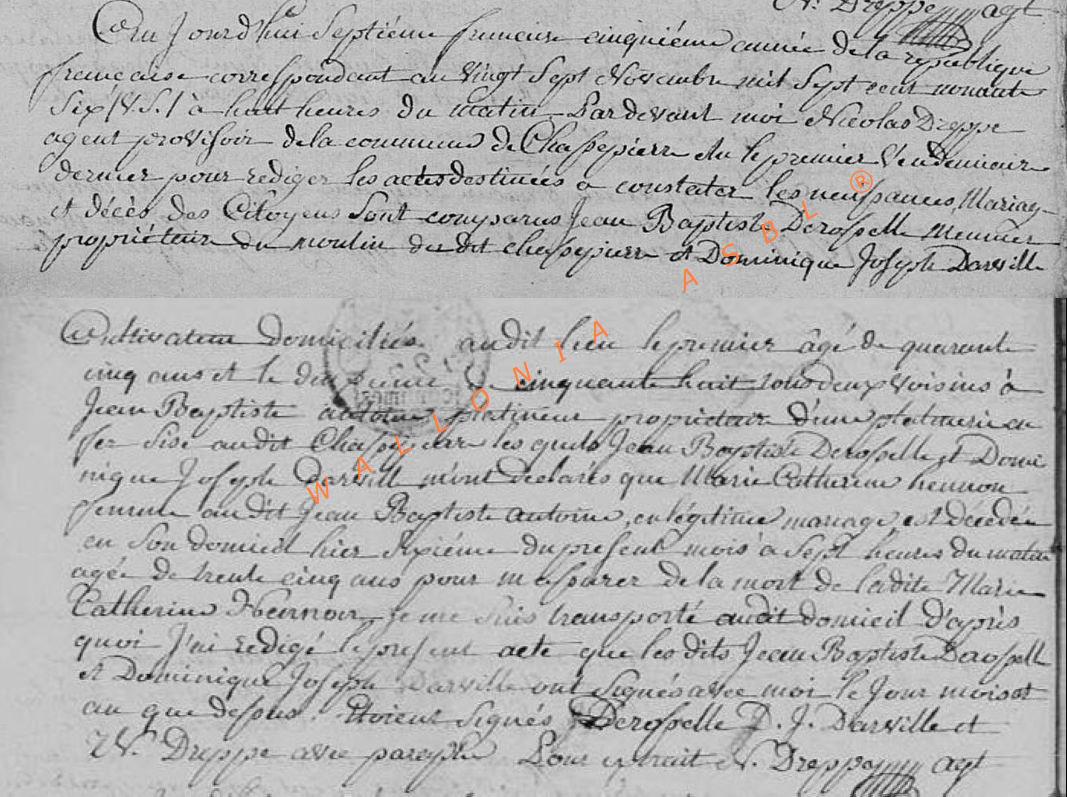 N. Dreppe agt
Ceu Jourd'hui Septiéme frimaire cinquiéme année de la république
francaise correspondant au vingt Sept Novembre mil Sept cent nonante
Six (V.S.) à huit heures du matin Pardevant moi Nicolas Dreppe
agent provisoir dela commune de Chassepierre elu le premier Vendemiaire
dernier pour rediger les actes destinées a constater les naissances, Mariag-
et décès des Citoyens Sont comparus Jean Baptiste Derosselle Meunier
propriétaire du moulin du dit chassepierre et Dominique Joseph Darville
Cultivateur domiciliés audit lieu le premier âgé de quarante
cinq ans et le deuxieme de cinquante huit tous deux voisins à
Jean Baptiste antoine platineur propriétaire d'une platinerie en
fer Sise audit Chassepierre les quels Jean Baptiste Derosselle et Domi
nique Joseph Darvill m'ont declarés que Marie Catherine hennon
femme audit Jean Baptiste antoine, en légitime mariage, est décédée
en Son domicil hier Sixiéme du present mois a Sept heures du matin
agée de trente cinq ans pour m'assurer de la mort de ladite Marie
Catherine Hernon, je me Suis transporté audit domicil d'après
quoi J'ai redigé le present acte que les dits Jean Baptiste Derossell
et Dominique Joseph Darville ont Signés avec moi le Jour mois et
an que dessus. Etoient Signés Derosselle D. J. Darville et
N. Dreppe avec paraphe Pour extrait N. Dreppe agt
WALLONIA ASBL ®